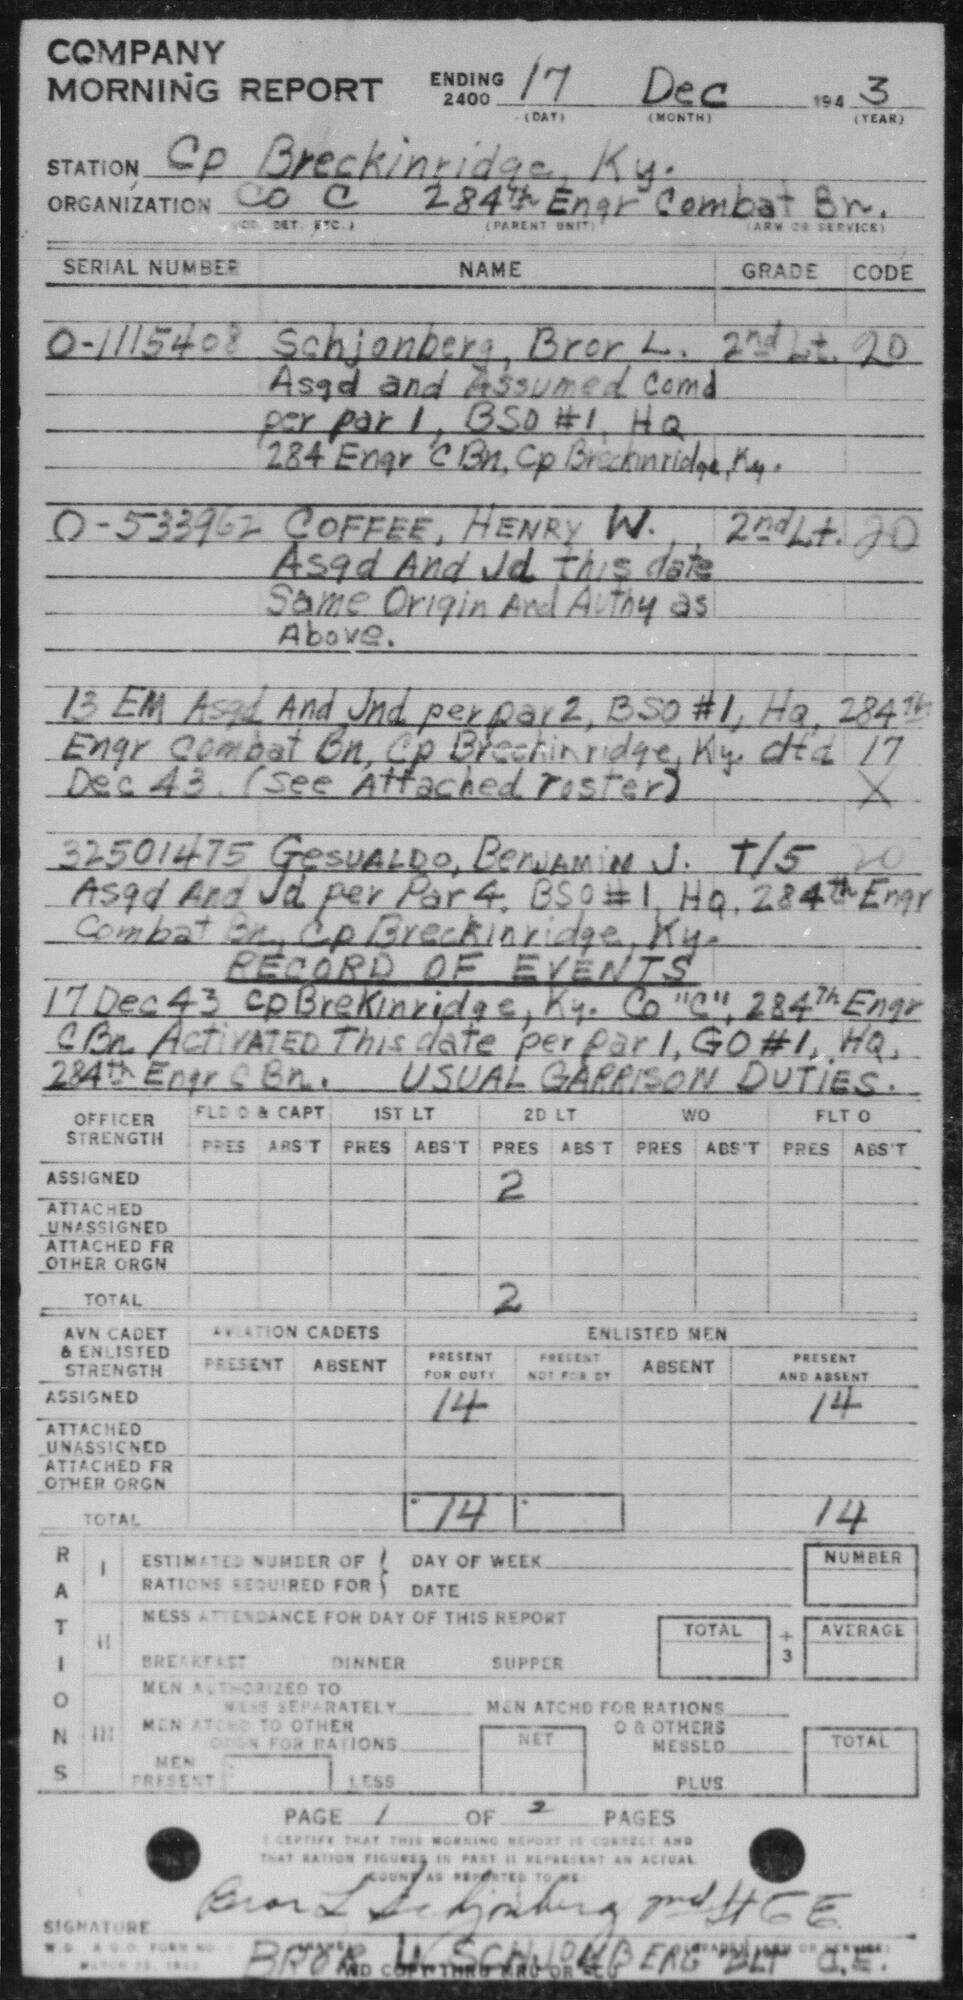 COMPANY
MORNING REPORT ENDING 2400 17 Dec 194 3
(DAY) (MONTH) (YEAR)
STATION Cp Breckinridge, Ky.
ORGANIZATION Co C 284th Engr Combat Bn.
(CO, DET, ETC.) (PARENT UNIT) (ARM OR SERVICE)
SERIAL NUMBER NAME GRADE CODE
O-1115408 Schjonberg, Bror L. 2nd Lt. 20
Asgd and Assumed Comd
per par 1, BSO #1, HQ
284 Engr C Bn, Cp Breckinridge, Ky.
O-533962 COFFEE, HENRY W. 2nd Lt. 20
Asgd And Jd this date
Same Origin And Authy as
Above.
13 EM Asgd And Jnd per par 2, BSO #1, Hq, 284th
Engr Combat Bn, Cp Breckinridge, Ky. dtd 17
Dec 43. (See Attached roster) X
32501475 GESUALDO, BENJAMIN J. T/5 20
Asgd And Jd per Par 4, BSO #1, HQ, 284th Engr
Combat Bn, Cp Breckinridge, Ky.
RECORD OF EVENTS
17 Dec 43 Cp BreKinridge, Ky. Co "C", 284th Engr
C Bn ACTIVATED This date per par 1, GO #1, HQ,
284th Engr C Bn. USUAL GARRISON DUTIES.
OFFICER STRENGTH FLD O & CAPT 1ST LT 2D LT WO FLT O
PRES ABS'T PRES ABS'T PRES ABS'T PRES ABS'T PRES ABS'T
ASSIGNED 2
ATTACHED UNASSIGNED
ATTACHED FR OTHER ORGN
TOTAL 2
AVN CADET & ENLISTED STRENGTH AVIATION CADETS ENLISTED MEN
PRESENT ABSENT PRESENT FOR DUTY PRESENT NOT FOR DY ABSENT PRESENT AND ABSENT
ASSIGNED 14 14
ATTACHED UNASSIGNED
ATTACHED FR OTHER ORGN
TOTAL 14 14
RATIONS
I ESTIMATED NUMBER OF RATIONS REQUIRED FOR DAY OF WEEK DATE NUMBER
II MESS ATTENDANCE FOR DAY OF THIS REPORT TOTAL ÷ 3 AVERAGE
BREAKFAST DINNER SUPPER
III MEN AUTHORIZED TO MESS SEPARATELY MEN ATCHD FOR RATIONS
MEN ATCHD TO OTHER ORGN FOR RATIONS NET O & OTHERS MESSED TOTAL
MEN PRESENT LESS PLUS
PAGE 1 OF 2 PAGES
I CERTIFY THAT THIS MORNING REPORT IS CORRECT AND
THAT RATION FIGURES IN PART II REPRESENT AN ACTUAL
COUNT AS REPORTED TO ME
Bror L Schjonberg 2nd Lt C E
SIGNATURE
W.D., A.G.O. FORM NO.
BROR L. SCHJONBERG 2LT C.E.